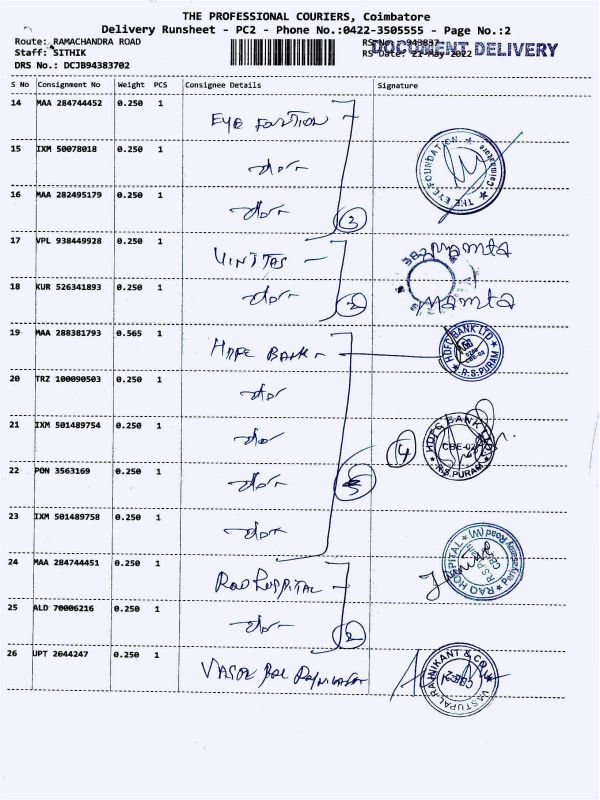 THE PROFESSIONAL COURIERS, Coimbatore
Delivery Runsheet - PC2 - Phone No.:0422-3505555 - Page No.:2
Route: RAMACHANDRA ROAD
Staff: SITHIK
DRS No.: DCJB94383702
RS No.: 943837
RS Date: 21-May-2022
DOCUMENT DELIVERY
S No Consignment No Weight PCS Consignee Details Signature
14 MAA 284744452 0.250 1
15 IXM 50078018 0.250 1
THE EYE FOUNDATION Coimbatore
16 MAA 282495179 0.250 1
3
17 VPL 938449928 0.250 1 UNITAS Mamta
18 KUR 526341893 0.250 1 Mamta
2
19 MAA 288381793 0.565 1 HDFC BANK HDFC BANK LTD R.S.PURAM
20 TRZ 100090503 0.250 1
21 IXM 501489754 0.250 1
4 HDFC BANK LTD CBE-02 R.S.PURAM
22 PON 3563169 0.250 1
5
23 IXM 501489758 0.250 1
24 MAA 284744451 0.250 1 Rao Hospital RAO HOSPITAL Periyasamy Road (W) R S Puram
25 ALD 70006216 0.250 1
2
26 UPT 2044247 0.250 1 VASTUPAL RAJNIKANT & CO